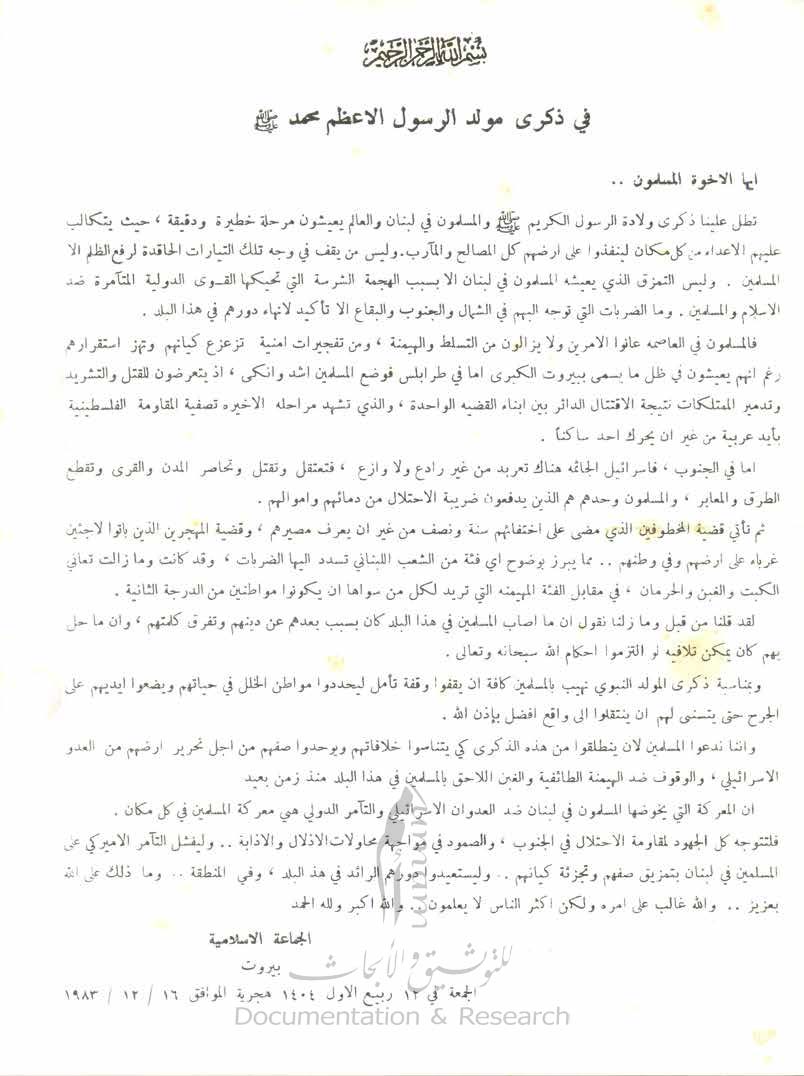 بسم الله الرحمن الرحيم
في ذكرى مولد الرسول الاعظم محمد ﷺ
ايها الاخوة المسلمون ..
تطل علينا ذكرى ولادة الرسول الكريم ﷺ والمسلمون في لبنان والعالم يعيشون مرحلة خطيرة ودقيقة ، حيث يتكالب
عليهم الاعداء من كل مكان لينفذوا على ارضهم كل المصالح والمآرب. وليس من يقف في وجه تلك التيارات الحاقدة لرفع الظلم الا
المسلمين . وليس التمزق الذي يعيشه المسلمون في لبنان الا بسبب الهجمة الشرسة التي تحيكها القوى الدولية المتآمرة ضد
الاسلام والمسلمين . وما الضربات التي توجه اليهم في الشمال والجنوب والبقاع الا تأكيد لانهاء دورهم في هذا البلد .
فالمسلمون في العاصمه عانوا الامرين ولا يزالون من التسلط والهيمنة ، ومن تفجيرات امنية تزعزع كيانهم وتهز استقرارهم
رغم انهم يعيشون في ظل ما يسمى ببيروت الكبرى اما في طرابلس فوضع المسلمين اشد وانكى ، اذ يتعرضون للقتل والتشريد
وتدمير الممتلكات نتيجة الاقتتال الدائر بين ابناء القضيه الواحدة ، والذي تشهد مراحله الاخيره تصفية المقاومة الفلسطينية
بأيد عربية من غير ان يحرك احد ساكناً .
اما في الجنوب ، فاسرائيل الجاثمه هناك تعربد من غير رادع ولا وازع ، فتعتقل وتقتل وتحاصر المدن والقرى وتقطع
الطرق والمعابر ، والمسلمون وحدهم هم الذين يدفعون ضريبة الاحتلال من دمائهم واموالهم .
ثم تأتي قضية المخطوفين الذي مضى على اختفائهم سنة ونصف من غير ان يعرف مصيرهم ، وقضية المهجرين الذين باتوا لاجئين
غرباء على ارضهم وفي وطنهم .. مما يبرز بوضوح اي فئة من الشعب اللبناني تسدد اليها الضربات ، وقد كانت وما زالت تعاني
الكبت والغبن والحرمان ، في مقابل الفئة المهيمنه التي تريد لكل من سواها ان يكونوا مواطنين من الدرجة الثانية .
لقد قلنا من قبل وما زلنا نقول ان ما اصاب المسلمين في هذا البلد كان بسبب بعدهم عن دينهم وتفرق كلمتهم ، وان ما حل
بهم كان يمكن تلافيه لو التزموا احكام الله سبحانه وتعالى .
وبمناسبة ذكرى المولد النبوي نهيب بالمسلمين كافة ان يقفوا وقفة تأمل ليحددوا مواطن الخلل في حياتهم ويضعوا ايديهم على
الجرح حتى يتسنى لهم ان ينتقلوا الى واقع افضل بإذن الله .
واننا ندعوا المسلمين لان ينطلقوا من هذه الذكرى كي يتناسوا خلافاتهم ويوحدوا صفهم من اجل تحرير ارضهم من العدو
الاسرائيلي ، والوقوف ضد الهيمنة الطائفية والغبن اللاحق بالمسلمين في هذا البلد منذ زمن بعيد
ان المعركة التي يخوضها المسلمون في لبنان ضد العدوان الاسرائيلي والتآمر الدولي هي معركة المسلمين في كل مكان .
فلتتوجه كل الجهود لمقاومة الاحتلال في الجنوب ، والصمود في مواجهة محاولات الاذلال والاذابة .. وليفشل التآمر الاميركي على
المسلمين في لبنان بتمزيق صفهم وتجزئة كيانهم .. وليستعيدوا دورهم الرائد في هذ البلد ، وفي المنطقة .. وما ذلك على الله
بعزيز .. والله غالب على امره ولكن اكثر الناس لا يعلمون .. والله اكبر ولله الحمد
الجماعة الاسلامية
بيروت
الجمعة في ١٢ ربيع الاول ١٤٠٤ هجرية الموافق ١٦ / ١٢ / ١٩٨٣
للتوثيق والأبحاث
Documentation & Research